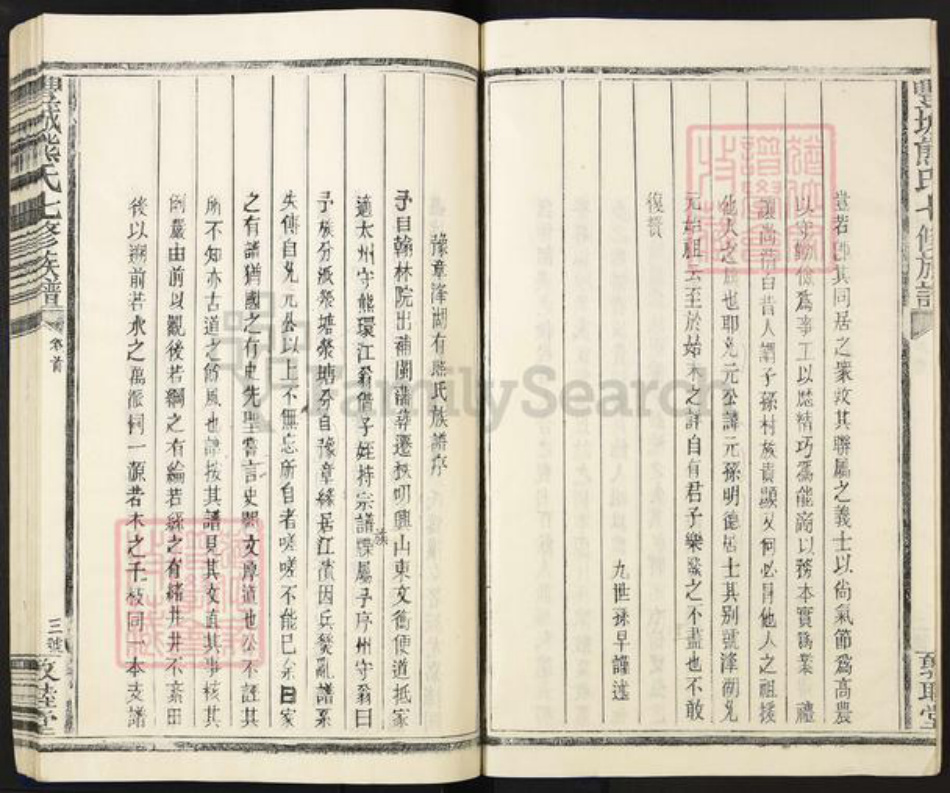 豐城熊氏七修族譜
當若
其同居之眾敦其聯屬之義士以尚氣節為高農
以
勤儉為事工以歷精巧為能商以務本實為業
禮
讓尚
昔人謂子孫村族貴顯又何必冒他人之祖援
他人之族也耶允元公諱元孫明德居士其别號逢湖允
元始祖云至於始末之詳自有君子樂
之不盡也不敢
復贅
九世孫早謹述
敦睦堂
豫章逢湖有熊氏族譜序
予自翰林院出補閩藩
遷
明興山東文衡便道抵家
適太州守熊環江翁偕子姪持宗譜牒屬予序州守翁曰
族
予族分派槳塘槳塘分自豫章緣居江
因兵燹亂譜系
失傳自允元公以上不無忘所自者嗟嗟不能已余曰家
之有譜猶國之有史先聖嘗言史
文厚道也公不誣其
所不知亦古道之餘風也
按其譜見其文直其事核其
例嚴由前以觀後若綱之有綸若絲之有緒井井不紊由
後以溯前若水之萬派同一源若木之千枝同一本支譜
豐城熊氏七修族譜
卷首
三號
敦睦堂
FamilySearch